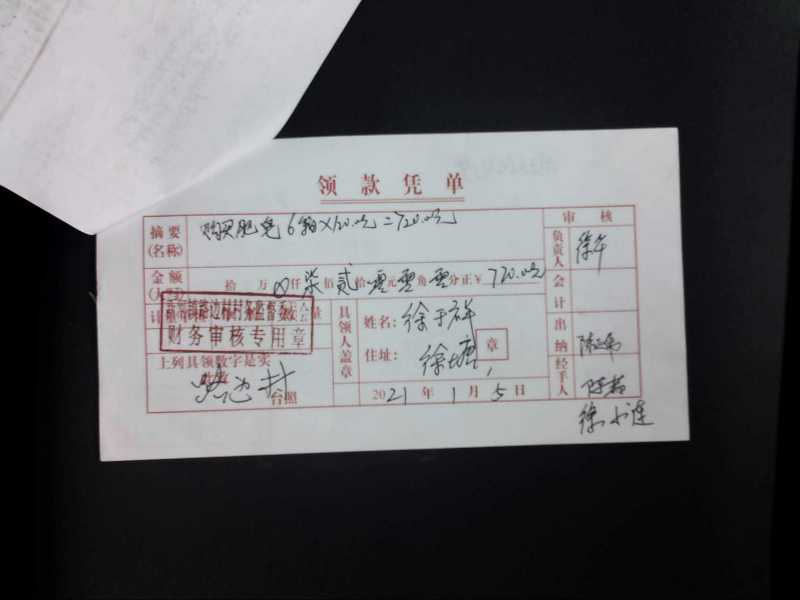 领款凭单
摘要(名称) 购买肥皂6箱×120.00元=720.00元 审核
负责人
金额(大写) 拾万⊗仟柒佰贰拾零元零角零分正¥720.00元 会计
村务监督委
财务审核专用章
具领人盖章 姓名:徐于祥 出纳
上列具领数字是实 住址:徐塘 章
台照 2021年1月5日 经手人
徐小连